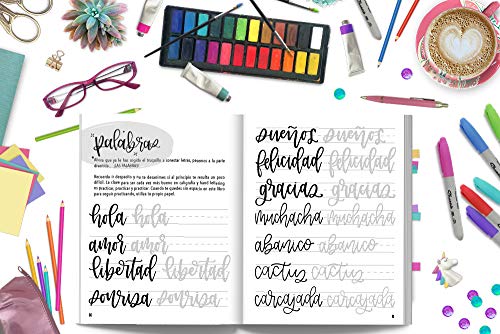 palabras
Ahora que ya le has cogido el truquillo a conectar letras, pasemos a la parte
divertida... ¡LAS PALABRAS!
Recuerda ir despacito y no te desanimes si al principio te resulta un poco
difícil. La clave para ser cada vez más bueno en caligrafía y hand lettering
es practicar, practicar y practicar. Cuando te quedes sin espacio en este libro
para seguir practicando, utiliza tu propio papel.
hola hola
amor amor
libertad libertad
sonrisa sonrisa
sueños sueños
felicidad felicidad
gracias gracias
muchacha muchacha
abanico abanico
cactus cactus
carcajada carcajada
Sharpie